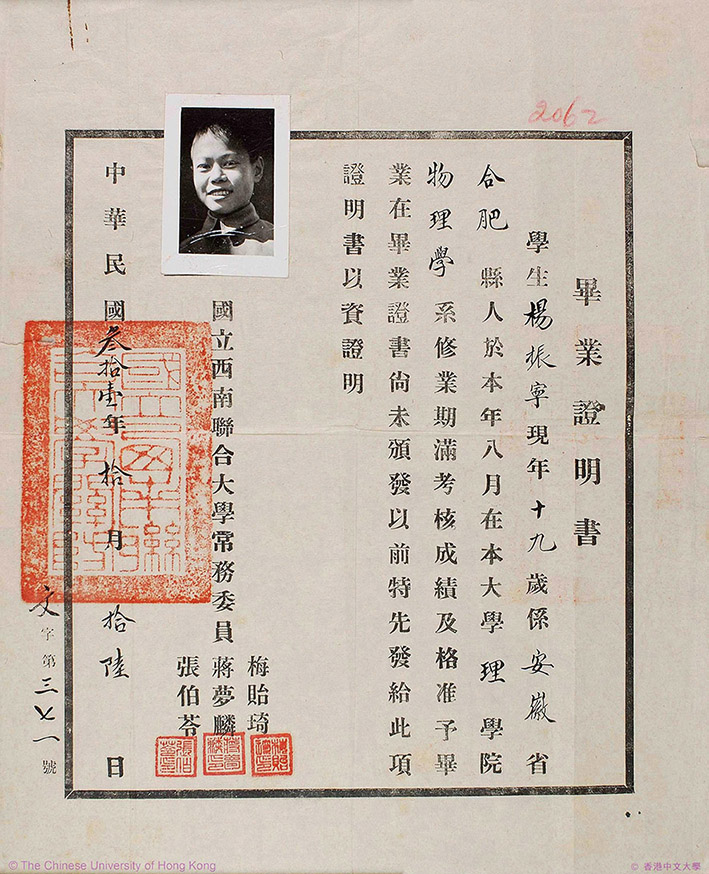 2062
畢業證明書
學生楊振寧現年十九歲係安徽省
合肥縣人於本年八月在本大學理學院
物理學系修業期滿考核成績及格准予畢
業在畢業證書尚未頒發以前特先發給此項
證明書以資證明
國立西南聯合大學常務委員
梅貽琦
蔣夢麟
張伯苓
中華民國叁拾壹年拾月拾陸日
文字第三七一號
© The Chinese University of Hong Kong
© 香港中文大學